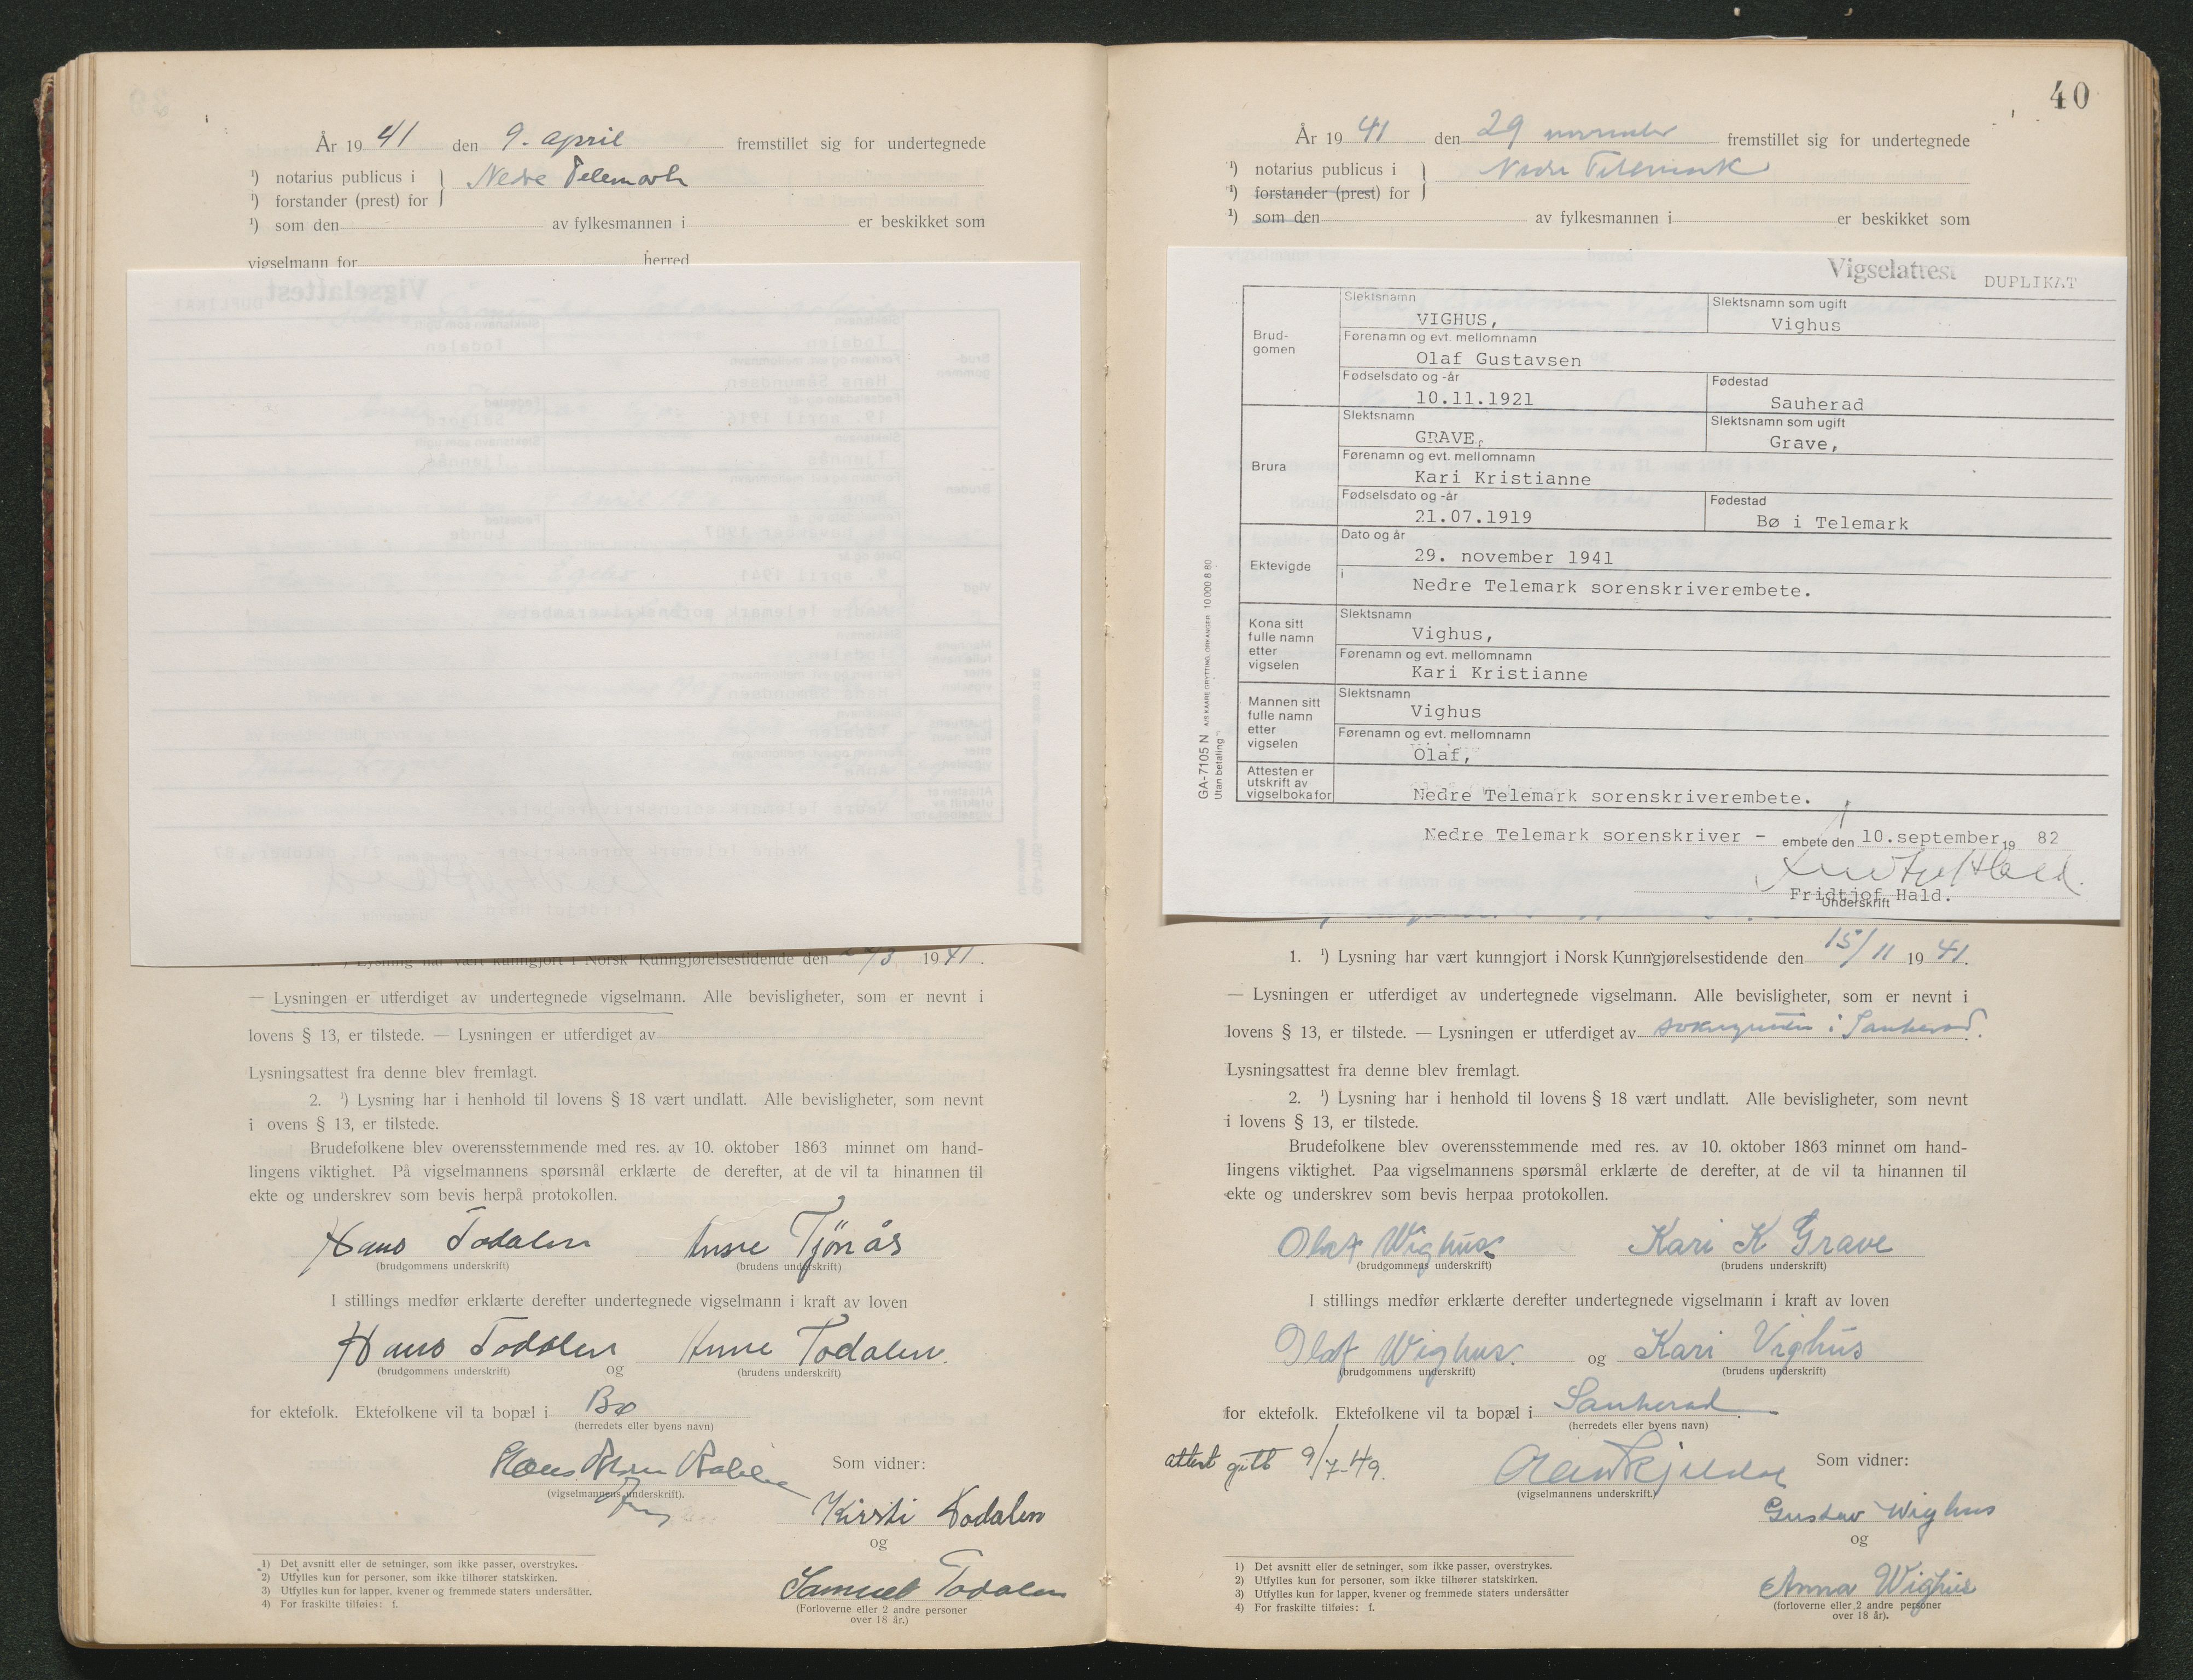 År 19 41 den 9. april fremstillet sig for undertegnede
¹) notarius publicus i } Nedre Telemark
¹) forstander (prest) for
¹) som den av fylkesmannen i er beskikket som
vigselmann for herred
1. ¹) Lysning har vært kunngjort i Norsk Kunngjørelsestidende den /3 1941.
— Lysningen er utferdiget av undertegnede vigselmann. Alle bevisligheter, som er nevnt i
lovens § 13, er tilstede. — Lysningen er utferdiget av
Lysningsattest fra denne blev fremlagt.
2. ¹) Lysning har i henhold til lovens § 18 vært undlatt. Alle bevisligheter, som nevnt
i ovens § 13, er tilstede.
Brudefolkene blev overensstemmende med res. av 10. oktober 1863 minnet om hand-
lingens viktighet. På vigselmannens spørsmål erklærte de derefter, at de vil ta hinannen til
ekte og underskrev som bevis herpå protokollen.
Hans Todalen Anne Tjönås
(brudgommens underskrift) (brudens underskrift)
I stillings medfør erklærte derefter undertegnede vigselmann i kraft av loven
Hans Todalen og Anne Todalen.
(brudgommens underskrift) (brudens underskrift)
for ektefolk. Ektefolkene vil ta bopæl i Bø
(herredets eller byens navn)
Som vidner:
(vigselmannens underskrift).
Kirsti Todalen
og
Samuel Todalen
(Forloverne eller 2 andre personer
over 18 år.)
1) Det avsnitt eller de setninger, som ikke passer, overstrykes.
2) Utfylles kun for personer, som ikke tilhører statskirken.
3) Utfylles kun for lapper, kvener og fremmede staters undersåtter.
4) For fraskilte tilføies: f.
40
År 19 41 den 29 november fremstillet sig for undertegnede
¹) notarius publicus i } Nedre Telemark
¹) forstander (prest) for
¹) som den av fylkesmannen i er beskikket som
Vigselattest DUPLIKAT
Brud-
gomen
Slektsnamn
VIGHUS,
Slektsnamn som ugift
Vighus
Førenamn og evt. mellomnamn
Olaf Gustavsen
Fødselsdato og -år
10.11.1921
Fødestad
Sauherad
Brura
Slektsnamn
GRAVE,
Slektsnamn som ugift
Grave,
Førenamn og evt. mellomnamn
Kari Kristianne
Fødselsdato og -år
21.07.1919
Fødestad
Bø i Telemark
Ektevigde
Dato og år
29. november 1941
i
Nedre Telemark sorenskriverembete.
Kona sitt
fulle namn
etter
vigselen
Slektsnamn
Vighus,
Førenamn og evt. mellomnamn
Kari Kristianne
Mannen sitt
fulle namn
etter
vigselen
Slektsnamn
Vighus
Førenamn og evt. mellomnamn
Olaf,
Attesten er
utskrift av
vigselboka for
Nedre Telemark sorenskriverembete.
Nedre Telemark sorenskriver - embete den 10.september 19 82
Fridtjof Hald.
Underskrift
GA-7105 N A/S KAARE GRYTTING, ORKANGER 10.000 8 80
Utan betaling
1. ¹) Lysning har vært kunngjort i Norsk Kunngjørelsestidende den 15/11 1941.
— Lysningen er utferdiget av undertegnede vigselmann. Alle bevisligheter, som er nevnt i
lovens § 13, er tilstede. — Lysningen er utferdiget av soknepresten i Sauherad.
Lysningsattest fra denne blev fremlagt.
2. ¹) Lysning har i henhold til lovens § 18 vært undlatt. Alle bevisligheter, som nevnt
i lovens § 13, er tilstede.
Brudefolkene blev overensstemmende med res. av 10. oktober 1863 minnet om hand-
lingens viktighet. Paa vigselmannens spørsmål erklærte de derefter, at de vil ta hinannen til
ekte og underskrev som bevis herpaa protokollen.
Olaf Wighus Kari K Grave
(brudgommens underskrift) (brudens underskrift)
I stillings medfør erklærte derefter undertegnede vigselmann i kraft av loven
Olaf Wighus. og Kari Vighus
(brudgommens underskrift) (brudens underskrift)
for ektefolk. Ektefolkene vil ta bopæl i Sauherad
(herredets eller byens navn)
attest gitt 9/7-49.
Som vidner:
(vigselmannens underskrift.)
Gustav Wighus
og
Anna Wighus
(forloverne eller 2 andre personer
over 18 år).
1) Det avsnitt eller de setninger, som ikke passer, overstrykes.
2) Utfylles kun for personer, som ikke tilhører statskirken.
3) Utfylles kun for lapper, kvener og fremmede staters undersåtter
4) For fraskilte tilføies: f.